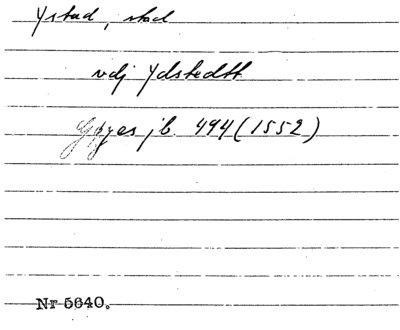 Ystad, stad
vdj Ydstedtt
Gyes jb. 494 (1552)
Nr 5640.